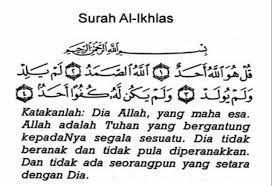 Surah Al-Ikhlas
بِسْمِ اللَّهِ الرَّحْمَٰنِ الرَّحِيمِ
قُلْ هُوَ اللَّهُ أَحَدٌ ١ اللَّهُ الصَّمَدُ ٢ لَمْ يَلِدْ
وَلَمْ يُولَدْ ٣ وَلَمْ يَكُن لَّهُ كُفُوًا أَحَدٌ ٤
Katakanlah: Dia Allah, yang maha esa.
Allah adalah Tuhan yang bergantung
kepadaNya segala sesuatu. Dia tidak
beranak dan tidak pula diperanakkan.
Dan tidak ada seorangpun yang setara
dengan Dia.